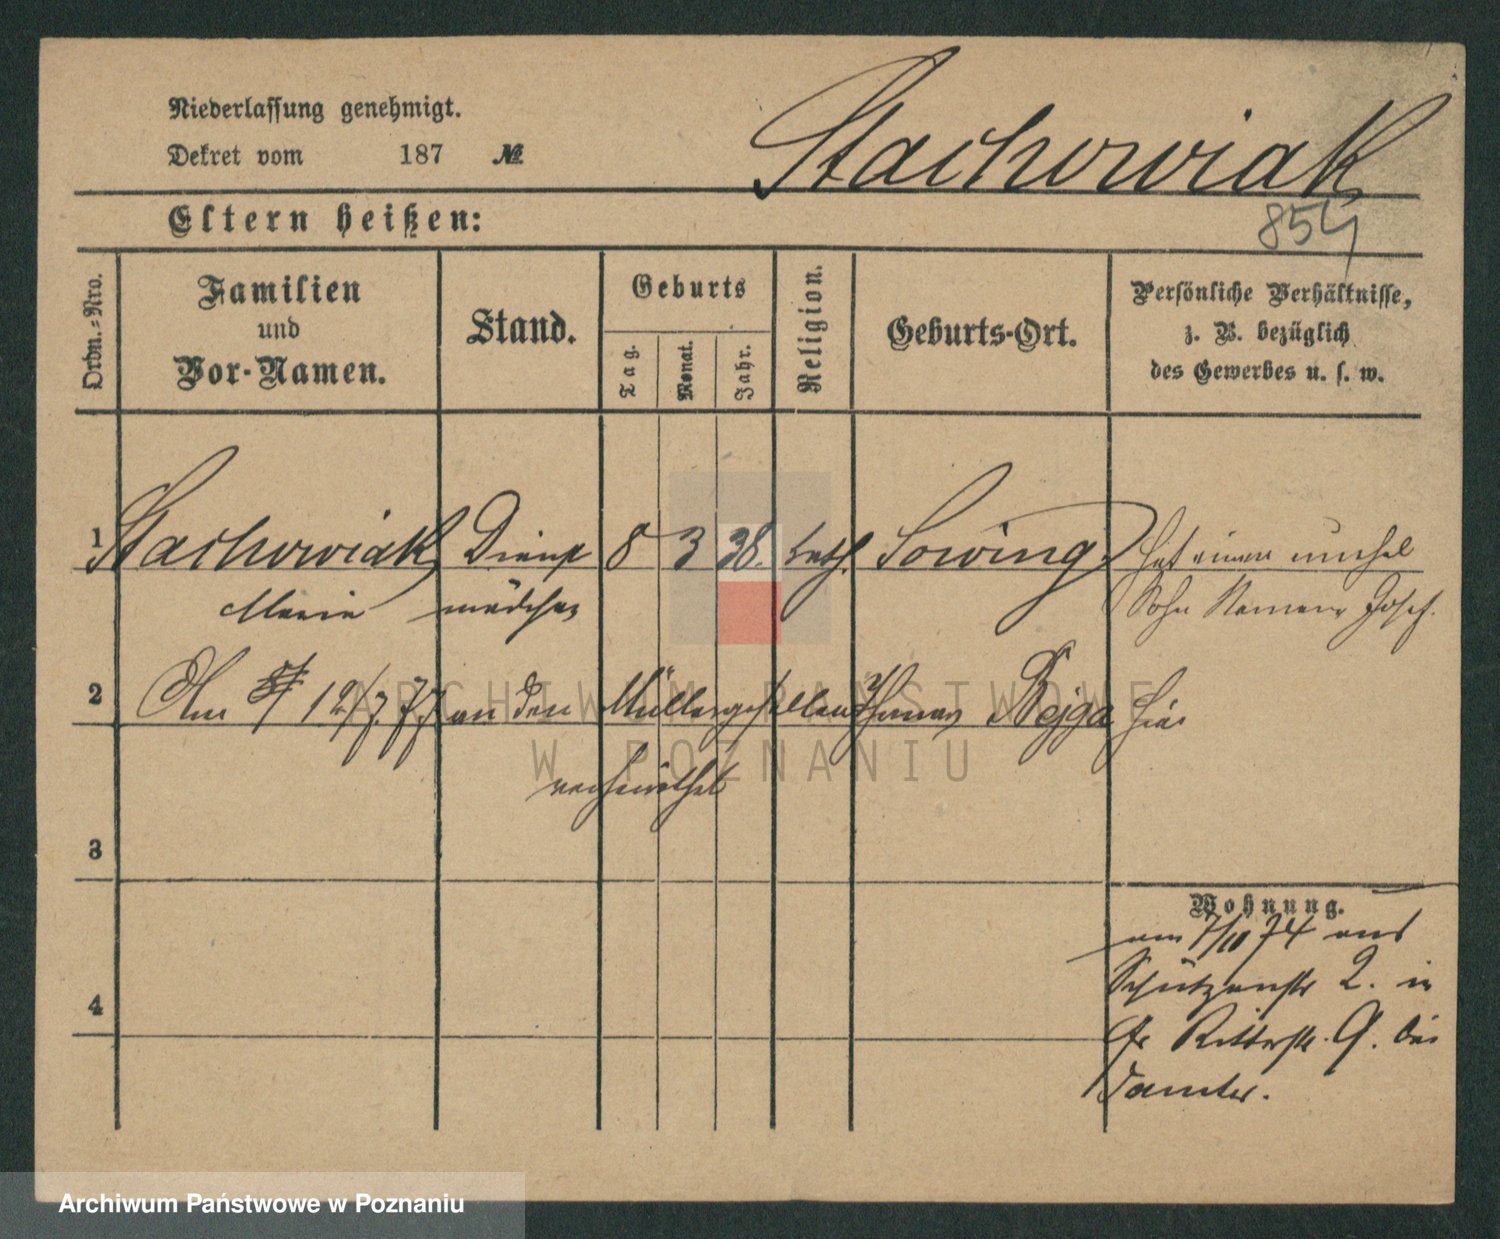 Stachowiak
Niederlassung genehmigt.
Dekret vom 187 №
Eltern heißen:
854
Ordn.-Nro.
Familien und Vor-Namen.
Stand.
Geburts
Tag. Monat. Jahr.
Religion.
Geburts-Ort.
Persönliche Verhältnisse,
z. B. bezüglich
des Gewerbes u. s. w.
1 Stachowiak Dienst 8 3 38. kath. Sowing Hat einen unehel
Marie mädchen Sohn Namens Josef.
2 Am 12/7. 77 an den Müllergesellen Thomas Rejga hier
verheirathet
3
4
Wohnung.
am 7/10 74 aus
Schützenstr 2. in
Gr Ritterstr. 9. bei
ARCHIWUM PAŃSTWOWE
W POZNANIU
Archiwum Państwowe w Poznaniu